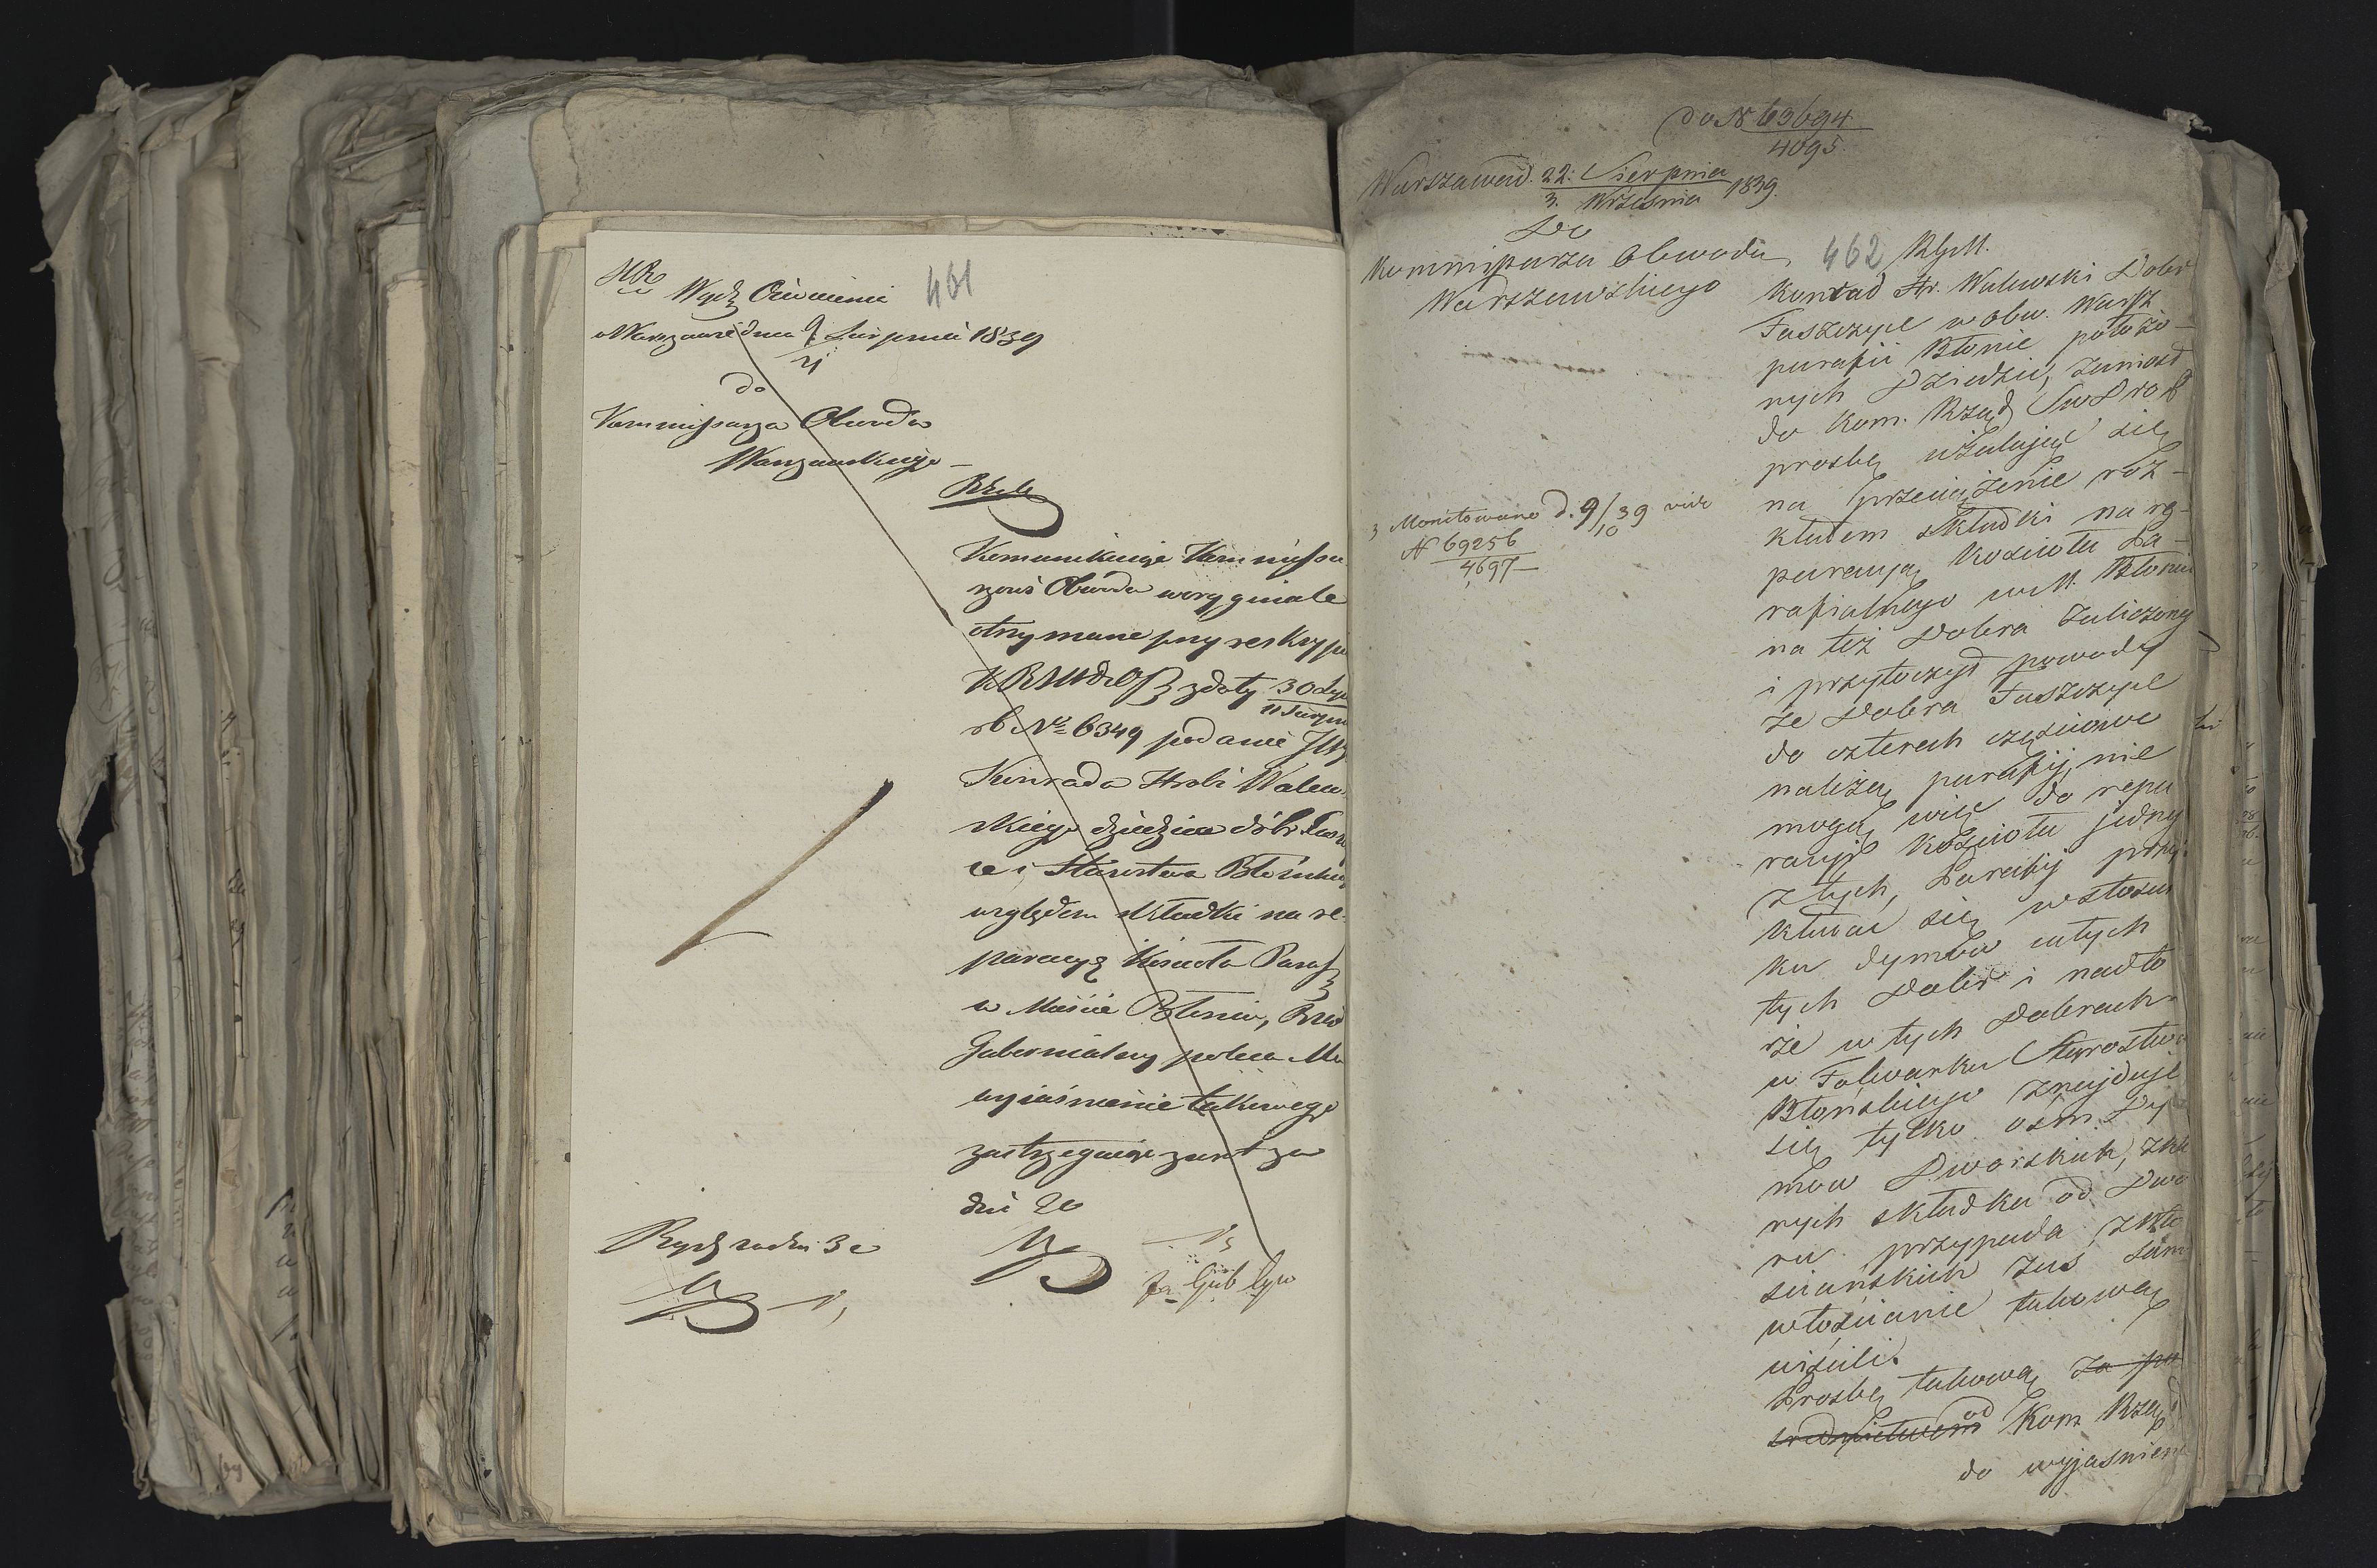 Wydz Oświecenia 461
w Warszawie dnia 9/21 Sierpnia 1839
do
Kommissarza Obwodu
Warszawskiego
Komunikując Kommissa
rzowi Obwodu w oryginale
otrzymane przy reskryp
z daty 30 Lip
11 Sierpn
rb № 6349 podanie JW
Konrada Hrabi Walew
skiego dziedzica dóbr Fasz
ce i Starostwa Błońskieg
względem składki na re
paracyą Kościoła Paraf
w Mieście Błoniu, Rząd
Gubernialny poleca Mu
wyjaśnienie takowego
zastrzegając na to
dni 20
Gub Cyw
do N 63694
4095
Warszawa d. 22. Sierpnia 1839.
3. Września
Do
Kommissarza Obwodu 462
Warszawskiego
Konrad Hr. Walewski Dobr
Faszczyce w obw. Warsz
parafii Błonie położo-
nych Dziedzic, zaniosł
do Kom. Rząd
prosbę użalając się
na przeciążenie roz-
kładem składki na re-
paracyą Kościoła Pa-
rafialnego w M. Błoniu
na też Dobra zaliczonej
i przytoczył powody
że Dobra Faszczyce
do czterech częściowo
należą parafij, nie
mogą więc do repa
racyi Kościoła jednej
z tych Parafij przy
kładać się w stosun
ku dymów całych
tych Dobr i nadto
że w tych Dobrach
w Folwarku Starostwo
Błońskiego znajduje
się tylko osm Dy
mow Dworskich, z któ
rych składka od Dwo
ru przypada, z wło
sciańskich zas sam
włościanie takową
uiścili.
Prosbę takową za po
srednictwem od Kom Rząd
do wyjasnien
Monitowano d. 9/10 39 vide
N 69256
4697